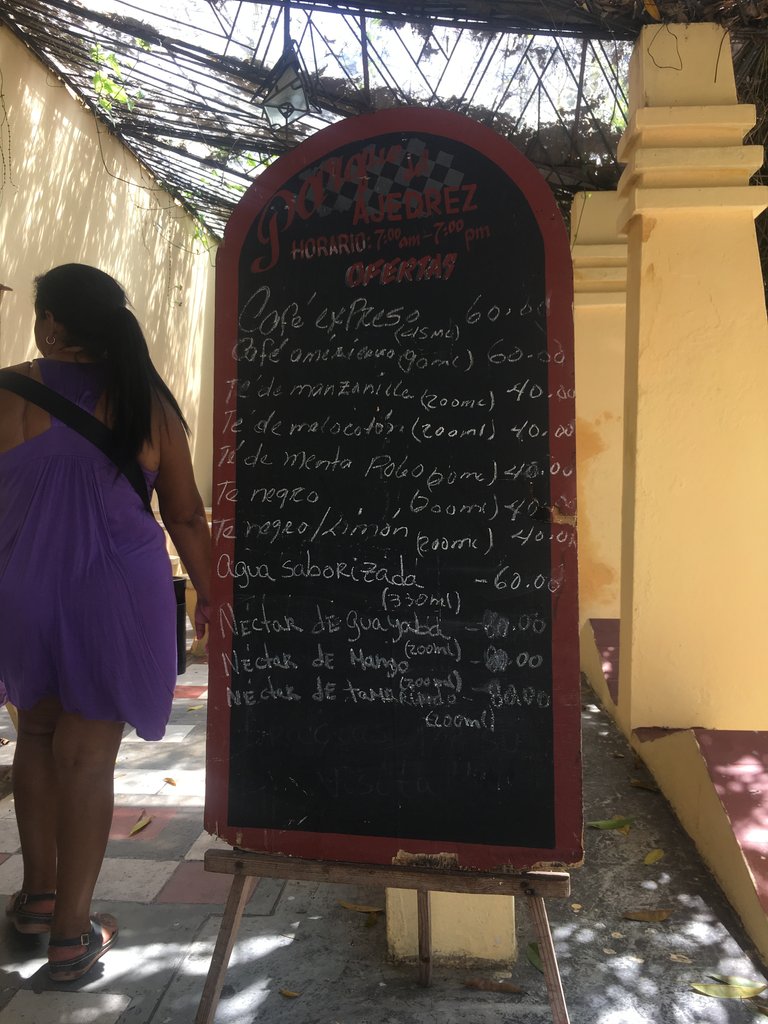 Parque
AJEDREZ
HORARIO: 7:00 am - 7:00 pm
OFERTAS
Café expreso (45ml) 60.00
Café américano (90ml) 60.00
Té de manzanilla (200ml) 40.00
Té de melocotón (200ml) 40.00
Té de Menta Poleo (200ml) 40.00
Te negro (200ml) 40.00
Te negro/Limón (200ml) 40.00
Agua saborizada - 60.00
(330ml)
Néctar de guayaba - 80.00
(200ml)
Néctar de Mango - 80.00
(200ml)
Néctar de tamarindo - 80.00
(200ml)